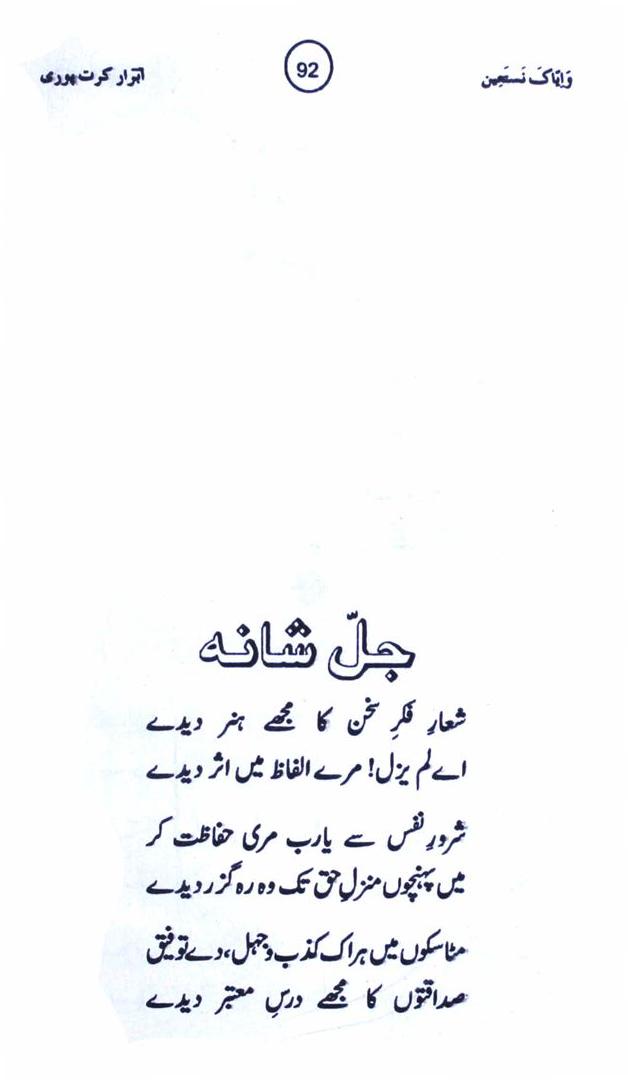 وَاِیّاکَ نَستَعِین 92 ابرار کرت پوری
جلّ شانہ
شعارِ فکرِ سخن کا مجھے ہنر دیدے
اے لم یزل! مرے الفاظ میں اثر دیدے
شرورِ نفس سے یارب مری حفاظت کر
میں پہنچوں منزلِ حق تک وہ رہ گزر دیدے
مٹا سکوں میں ہر اک کذب و جہل، دے توفیق
صداقتوں کا مجھے درسِ معتبر دیدے